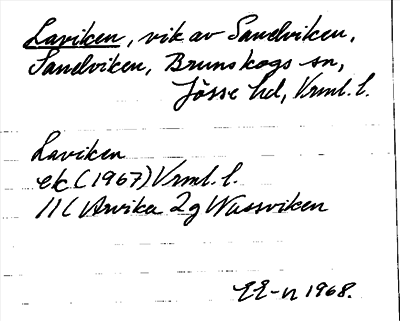 Laviken, vik av Sandviken,
Sandviken, Brunskogs sn,
Jösse hd, Vrml. l.
Laviken
ek (1967) Vrml. l.
11C Arvika 2g Wassviken
1968.